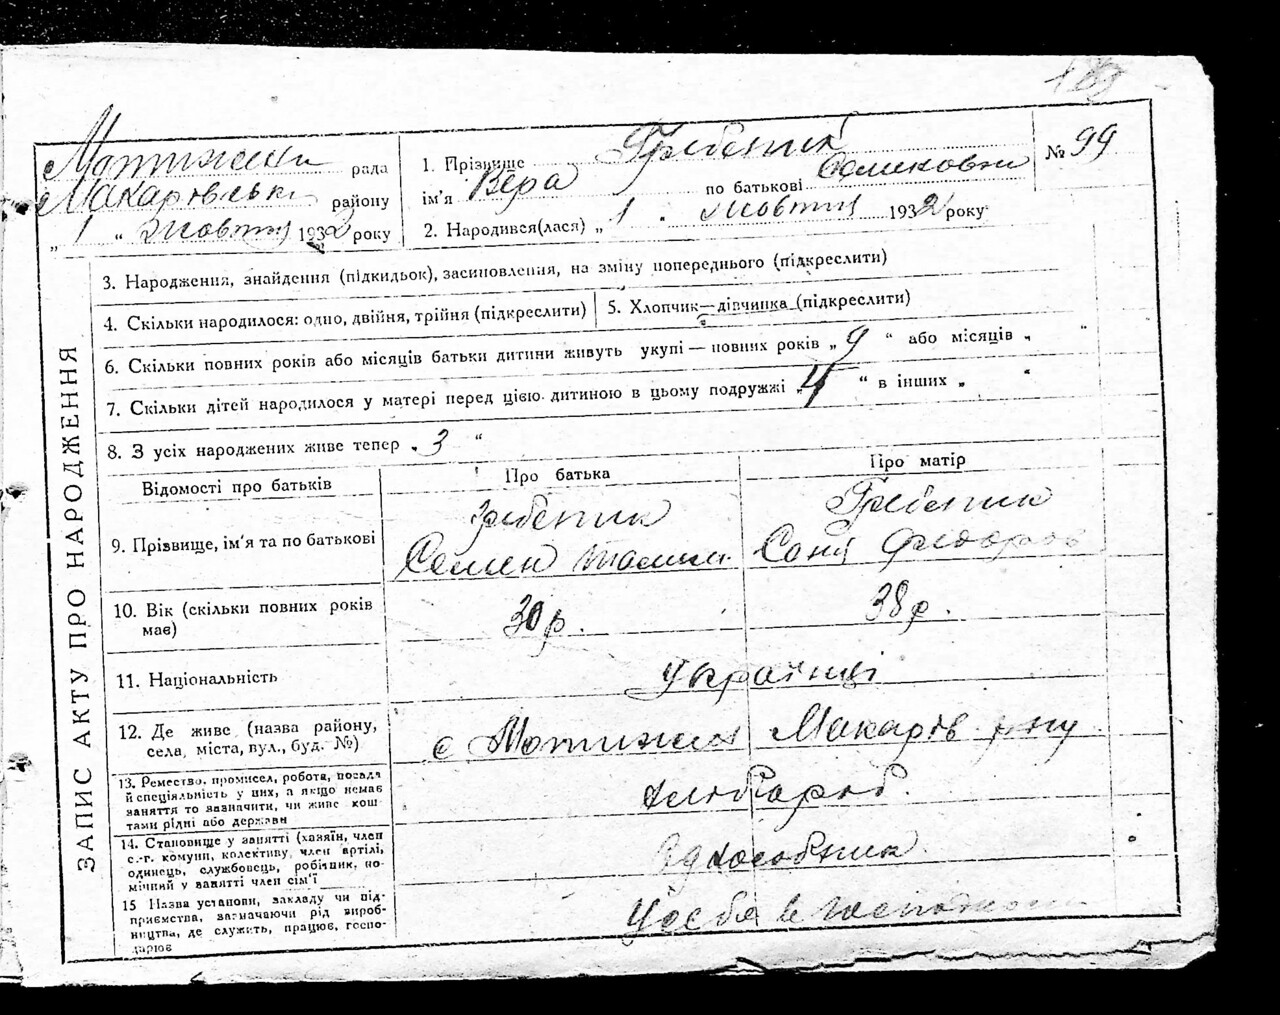 Мотижин рада
Макарівськ району
„ 1 “ Жовтня 1932 року
1. Прізвище Гребеник
ім'я Вера по батькові Семеновна
2. Народився(лася) „ 1 „ жовтня 1932 року
№ 99
ЗАПИС АКТУ ПРО НАРОДЖЕННЯ
3. Народження, знайдення (підкидьок), засиновлення, на зміну попереднього (підкреслити)
4. Скільки народилося: одно, двійня, трійня (підкреслити)
5. Хлопчик—дівчинка (підкреслити)
6. Скільки повних років або місяців батьки дитини живуть укупі — повних років „ 9 “ або місяців „ “
7. Скільки дітей народилося у матері перед цією дитиною в цьому подружжі „ 4 “ в інших „ “
8. З усіх народжених живе тепер „ 3 “
Відомості про батьків
Про батька
Про матір
9. Прізвище, ім'я та по батькові
Гребеник
Семен
Гребеник
Соня Федоров
10. Вік (скільки повних років
має)
30 р.
38 р.
11. Національність
Українці
12. Де живе (назва району,
села, міста, вул., буд. №)
с Мотижин Макарів р-ну
13. Ремество, промисел, робота, посада
й спеціяльність у них, а якщо немає
заняття то зазначити, чи живе кош-
тами рідні або держави
хлібороб.
14. Становище у занятті (хазяїн, член
с.-г. комуни, колективу, член артілі,
одинець, службовець, робітник, по-
мічний у занятті член сім'ї
Одноосібник
15 Назва установи, закладу чи під-
приємства, зазначаючи рід вироб-
ництва, де служить, працює, госпо-
дарює
У себе в